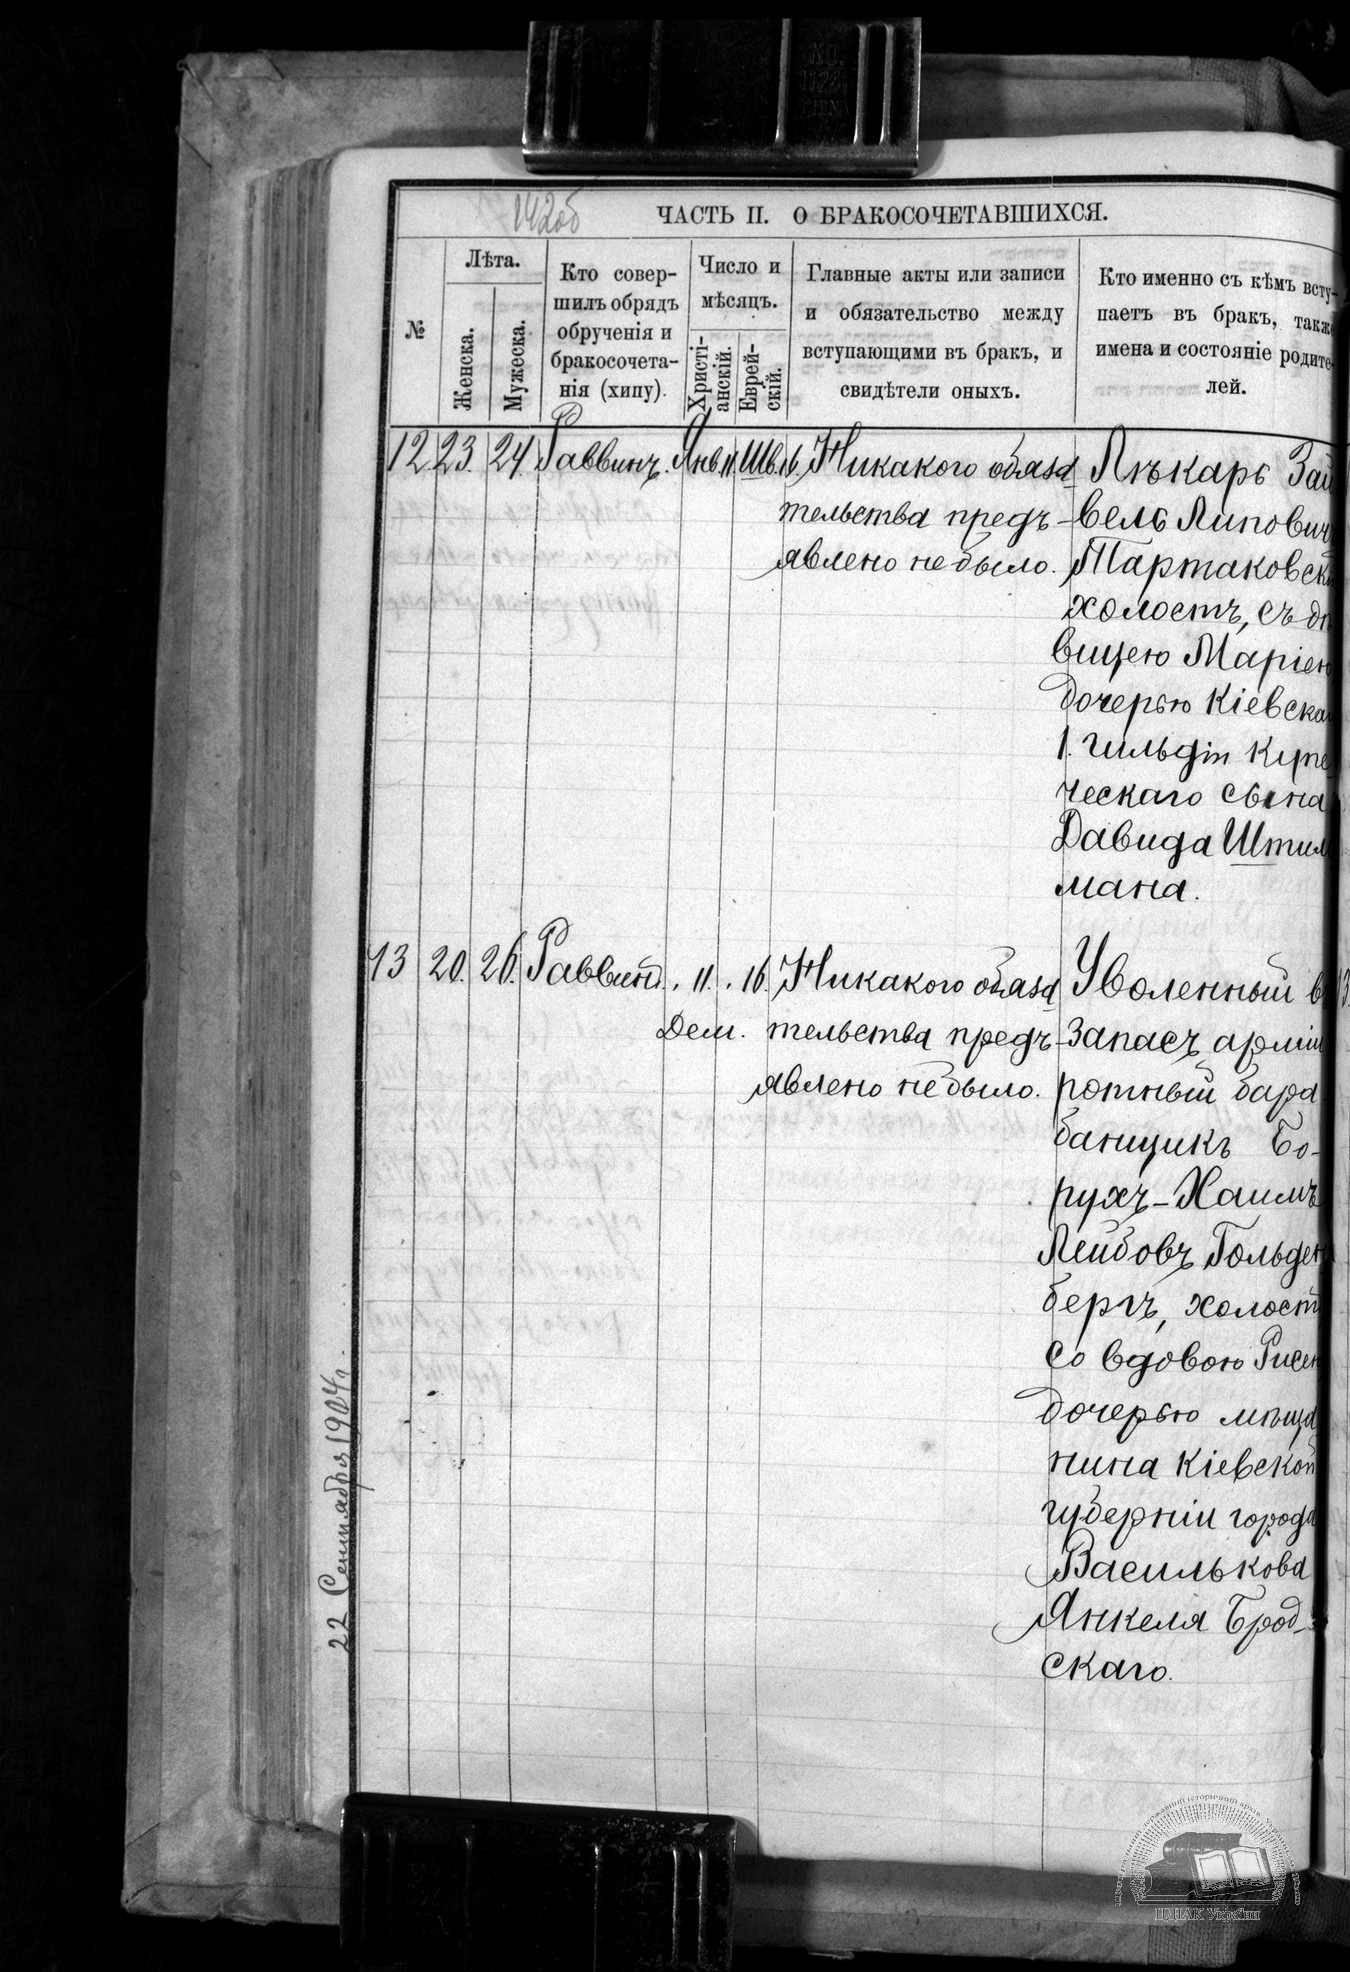 142об
ЧАСТЬ II. О БРАКОСОЧЕТАВШИХСЯ.
№
Лѣта.
Женска.
Мужеска.
Кто совер-
шилъ обрядъ
обрученія и
бракосочета-
нія (хипу).
Число и
мѣсяцъ.
Христі-
анскій.
Еврей-
скій.
Главные акты или записи
и обязательство между
вступающими въ бракъ, и
свидѣтели оныхъ.
Кто именно съ кѣмъ всту-
паетъ въ бракъ, также
имена и состояніе родите-
лей.
12 23. 24. Раввинъ. Янв. 11. Шв. 16.
Никакого обяза
тельства предъ-
явлено не было.
Лѣкарь Зай
вель Липович
Тартаковскі
холостъ, съ дѣ
вицею Маріею
дочерью Кіевскаг
1. гильдіи Купе
ческаго сына
Давида Штил
мана.
13 20. 26. Раввинъ. . 11. . 16.
Дем.
Никакого обяза
тельства предъ-
явлено не было.
Уволенный в
запасъ арміи
ротный бара
банщикъ Бо-
рухъ-Хаимъ
Лейбовъ Гольден
бергъ, холост
со вдовою Рисею
дочерью мѣща
нина Кіевской
губерніи города
Василькова
Янкеля Брод-
скаго.
22 Сентября 1904 г.
ЦДІАК України